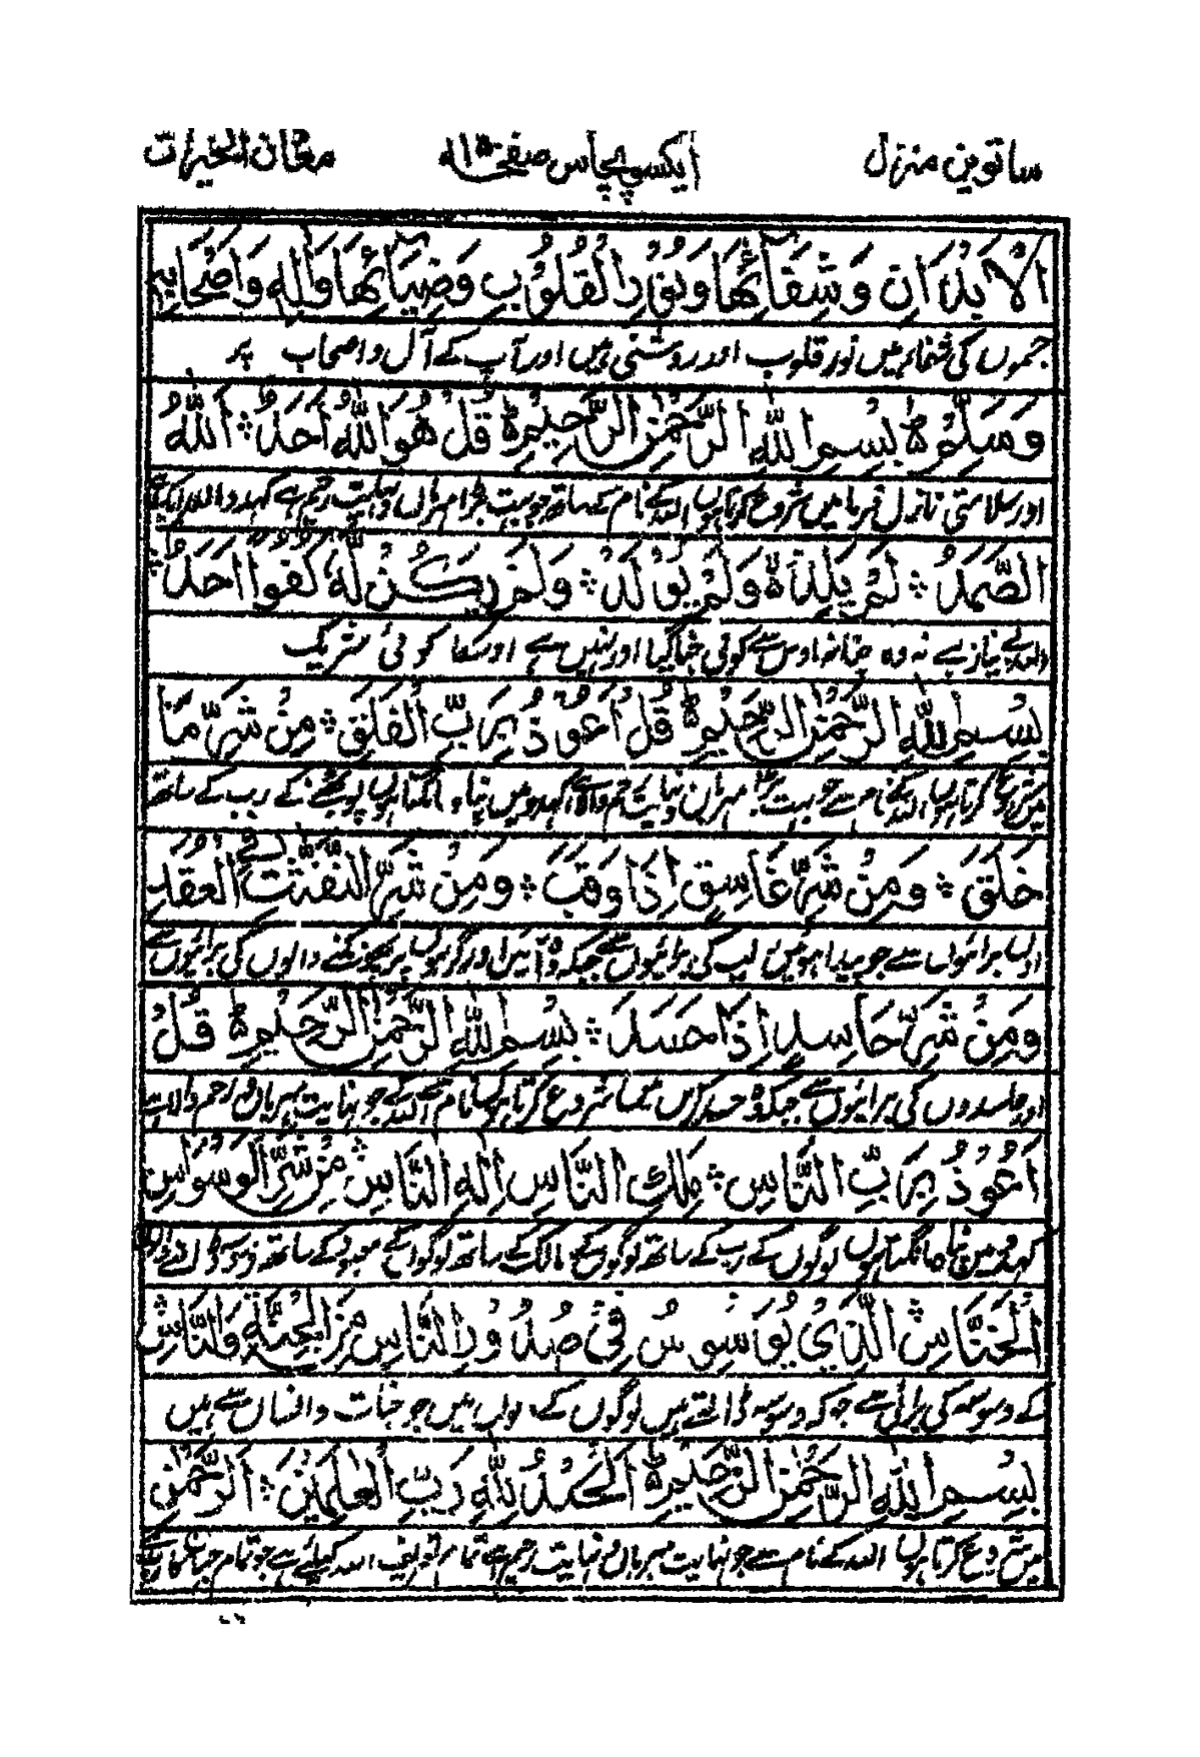 ساتوین منزل ایکسو پچاس صفحہ ۱۵۰ معان الخیرات
الْاَبْدَانِ وَشِفَآئِهَا وَنُوْرِ الْقُلُوْبِ وَضِيَآئِهَا وَاٰلِهٖ وَاَصْحَابِهٖ
جسموں کی شفا ہیں نور قلوب اور روشنی ہیں اور آپ کے آل و اصحاب پر
وَسَلِّمْ ؕ بِسْمِ اللّٰهِ الرَّحْمٰنِ الرَّحِيْمِ ؕ قُلْ هُوَ اللّٰهُ اَحَدٌ ۞ اَللّٰهُ
اور سلامتی نازل فرما میں شروع کرتا ہوں اللہ کے نام کے ساتھ جو بہت بڑا مہربان نہایت رحیم ہے کہدو اللہ ایک ہے
الصَّمَدُ ۞ لَمْ يَلِدْ ۙ وَلَمْ يُوْلَدْ ۞ وَلَمْ يَكُنْ لَّهٗ كُفُوًا اَحَدٌ ۞
بے نیاز ہے نہ وہ جنا نہ اوس سے کوئی جنا گیا اور نہیں ہے اوسکا کوئی شریک
بِسْمِ اللّٰهِ الرَّحْمٰنِ الرَّحِيْمِ ؕ قُلْ اَعُوْذُ بِرَبِّ الْفَلَقِ ۞ مِنْ شَرِّ مَا
میں شروع کرتا ہوں اللہ کے نام سے جو بہت بڑا مہربان نہایت رحم والا ہے کہدو میں پناہ مانگتا ہوں پو پھٹنے کے رب کے ساتھ
خَلَقَ ۞ وَمِنْ شَرِّ غَاسِقٍ اِذَا وَقَبَ ۞ وَمِنْ شَرِّ النَّفّٰثٰتِ فِي الْعُقَدِ
برائیوں سے جو پیدا ہوئیں کی برائیوں سے جبکہ وہ آئیں اور گرہوں پر پھونکنے والوں کی برائیوں سے
وَمِنْ شَرِّ حَاسِدٍ اِذَا حَسَدَ ۞ بِسْمِ اللّٰهِ الرَّحْمٰنِ الرَّحِيْمِ ؕ قُلْ
اور حاسدوں کی برائیوں سے جبکہ وہ حسد کریں میں شروع کرتا ہوں نام سے اللہ کے جو نہایت مہربان اور رحم والا ہے
اَعُوْذُ بِرَبِّ النَّاسِ ۞ مَلِكِ النَّاسِ اِلٰهِ النَّاسِ ۞ مِنْ شَرِّ الْوَسْوَاسِ
کہدو میں پناہ مانگتا ہوں لوگوں کے رب کے ساتھ لوگوں کے مالک کے ساتھ لوگوں کے معبود کے ساتھ
الْخَنَّاسِ ۞ الَّذِيْ يُوَسْوِسُ فِيْ صُدُوْرِ النَّاسِ مِنَ الْجِنَّةِ وَالنَّاسِ ۞
کے وسوسہ کی برائی سے جو کہ وسوسہ ڈالتے ہیں لوگوں کے دلوں میں جو جنات و انسان سے ہیں
بِسْمِ اللّٰهِ الرَّحْمٰنِ الرَّحِيْمِ ؕ اَلْحَمْدُ لِلّٰهِ رَبِّ الْعٰلَمِيْنَ ۞ اَلرَّحْمٰنِ
میں شروع کرتا ہوں اللہ کے نام سے جو نہایت مہربان نہایت رحیم ہے تمام تعریف اللہ کیلئے ہے جو تمام جہان کا رب ہے